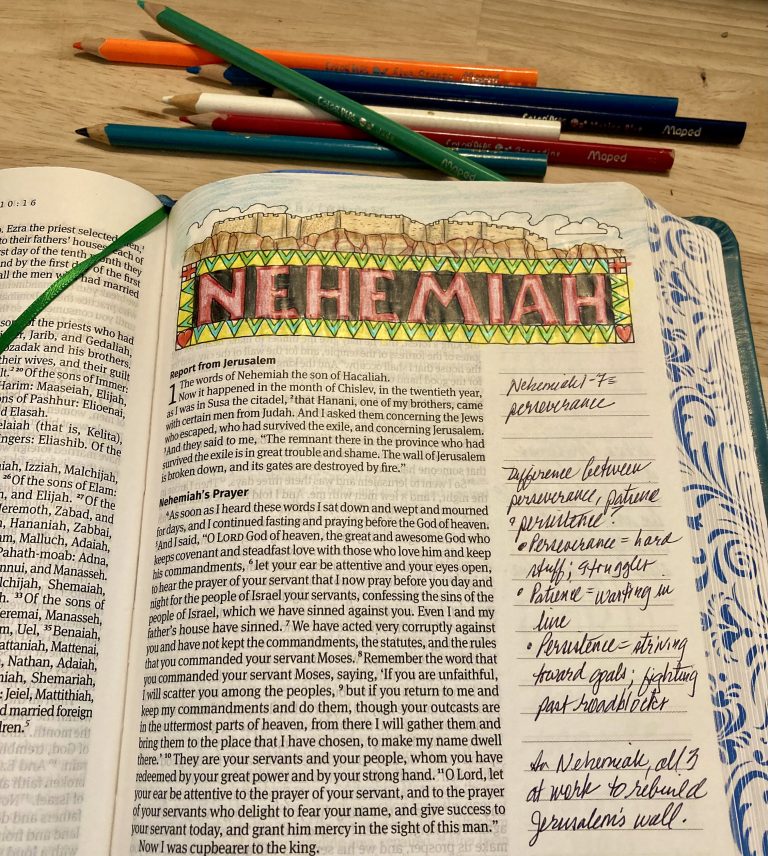 Maped
Maped
Maped
Maped
10:16
Ezra the priest selected men,¹
to their fathers' houses, each of
st day of the tenth month they
nd by the first of the first
all the men had married
of the priests who had
Jarib, and Gedaliah,
ozadak and his brothers.
their wives, and their guilt
lt.² ²⁰ Of the sons of Immer:
Harim: Maaseiah, Elijah,
ons of Pashhur: Elioenai,
d Elasah.
elaiah (that is, Kelita),
ingers: Eliashib. Of the
iah, Izziah, Malchijah,
²⁶ Of the sons of Elam:
h, and Elijah. ²⁷ Of the
Jeremoth, Zabad, and
, Hananiah, Zabbai,
m, Malluch, Adaiah,
Pahath-moab: Adna,
nnui, and Manasseh.
lchijah, Shemaiah,
h. ³³ Of the sons of
eremai, Manasseh,
m, Uel, ³⁵ Benaiah,
attaniah, Mattenai,
, Nathan, Adaiah,
niah, Shemariah,
: Jeiel, Mattithiah,
d married foreign
ldren.⁵
NEHEMIAH
Report from Jerusalem
1 The words of Nehemiah the son of Hacaliah.
Now it happened in the month of Chislev, in the twentieth year,
as I was in Susa the citadel, ² that Hanani, one of my brothers, came
with certain men from Judah. And I asked them concerning the Jews
who escaped, who had survived the exile, and concerning Jerusalem.
³ And they said to me, "The remnant there in the province who had
survived the exile is in great trouble and shame. The wall of Jerusalem
is broken down, and its gates are destroyed by fire."
Nehemiah's Prayer
⁴ As soon as I heard these words I sat down and wept and mourned
for days, and I continued fasting and praying before the God of heaven.
⁵ And I said, "O LORD God of heaven, the great and awesome God who
keeps covenant and steadfast love with those who love him and keep
his commandments, ⁶ let your ear be attentive and your eyes open,
to hear the prayer of your servant that I now pray before you day and
night for the people of Israel your servants, confessing the sins of the
people of Israel, which we have sinned against you. Even I and my
father's house have sinned. ⁷ We have acted very corruptly against
you and have not kept the commandments, the statutes, and the rules
that you commanded your servant Moses. ⁸ Remember the word that
you commanded your servant Moses, saying, 'If you are unfaithful,
I will scatter you among the peoples, ⁹ but if you return to me and
keep my commandments and do them, though your outcasts are
in the uttermost parts of heaven, from there I will gather them and
bring them to the place that I have chosen, to make my name dwell
there.' ¹⁰ They are your servants and your people, whom you have
redeemed by your great power and by your strong hand. ¹¹ O Lord, let
your ear be attentive to the prayer of your servant, and to the prayer
of your servants who delight to fear your name, and give success to
your servant today, and grant him mercy in the sight of this man."
Now I was cupbearer to the king.
Nehemiah 1-7=
perseverance
Difference between
perseverance, patience
persistence?
• Perseverance = hard
stuff; struggles
• Patience = waiting in
line
• Persistence = striving
toward goals; fighting
past roadblocks
In Nehemiah, all 3
at work to rebuild
Jerusalem's wall.